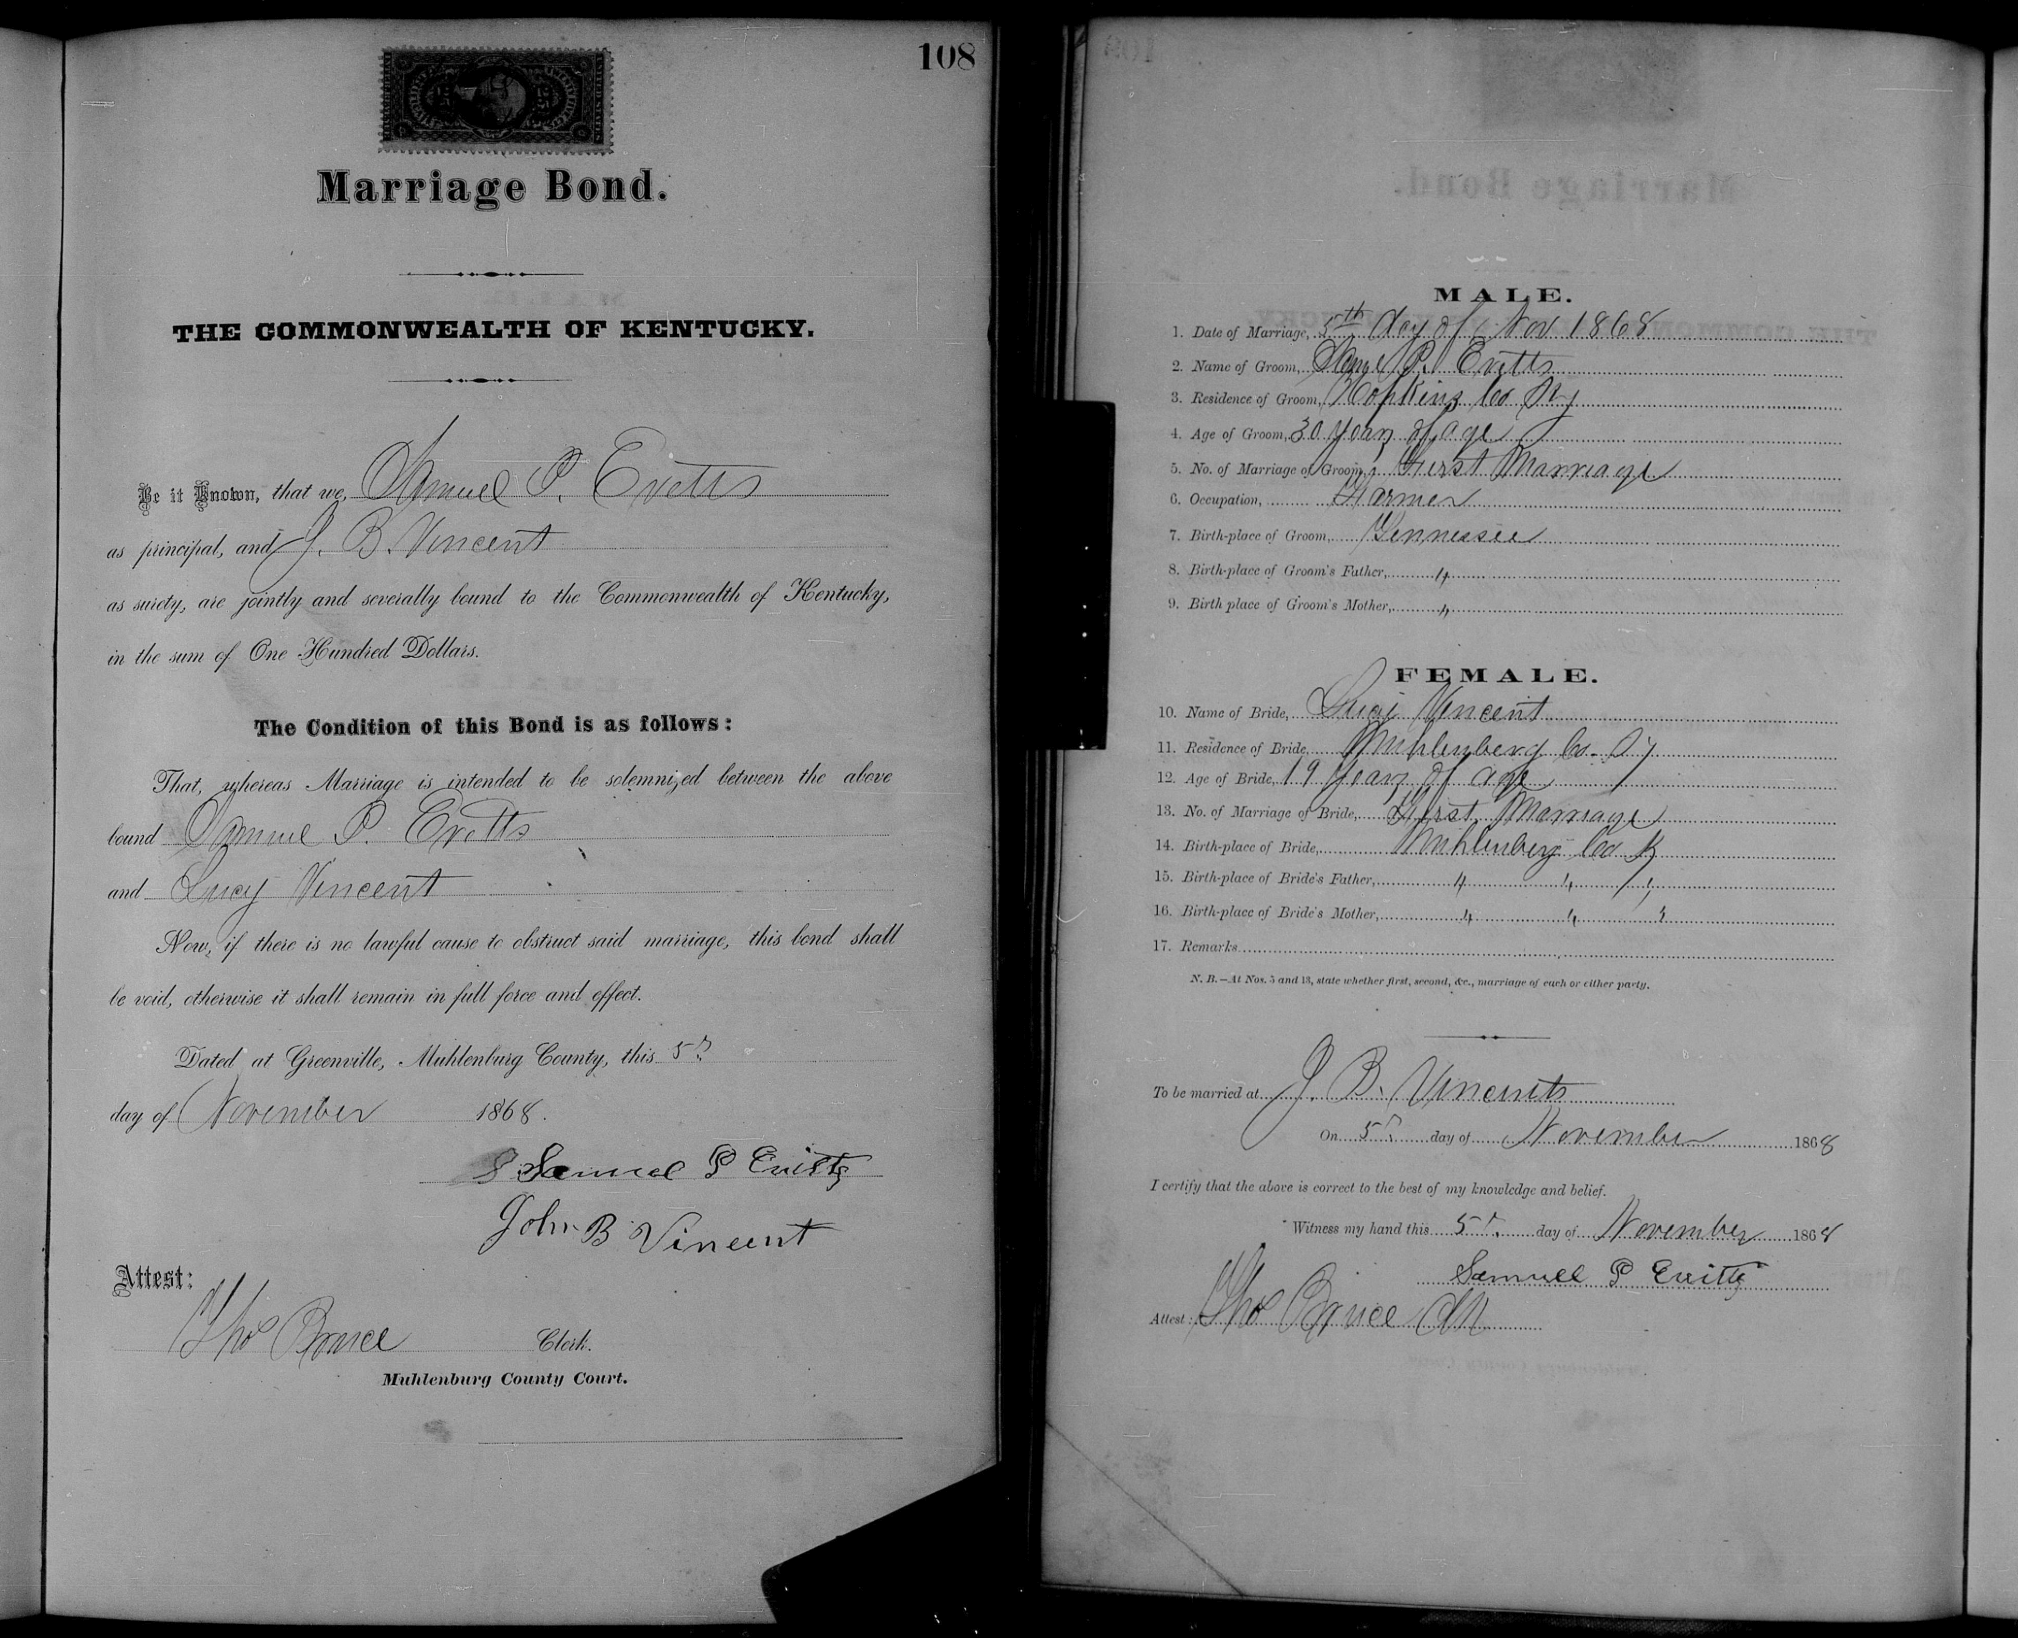 108
Marriage Bond.
THE COMMONWEALTH OF KENTUCKY.
Be it Known, that we, Samuel P. Evetts
as principal, and J. B. Vincent
as surety, are jointly and severally bound to the Commonwealth of Kentucky,
in the sum of One Hundred Dollars.
The Condition of this Bond is as follows:
That, whereas Marriage is intended to be solemnized between the above
bound Samuel P. Evetts
and Lucy Vincent
Now, if there is no lawful cause to obstruct said marriage, this bond shall
be void, otherwise it shall remain in full force and effect.
Dated at Greenville, Muhlenburg County, this 5th
day of November 1868.
Samuel P Evitts
John B Vincent
Attest:
Thos Bruce Clerk.
Muhlenburg County Court.
MALE.
1. Date of Marriage, 5th day of Nov 1868
2. Name of Groom, Saml P. Evetts
3. Residence of Groom, Hopkins Co Ky
4. Age of Groom, 30 years of age
5. No. of Marriage of Groom, First Marriage
6. Occupation, Farmer
7. Birth-place of Groom, Tennessee
8. Birth-place of Groom's Father, "
9. Birth place of Groom's Mother, "
FEMALE.
10. Name of Bride, Lucy Vincent
11. Residence of Bride, Muhlenberg Co. Ky
12. Age of Bride, 19 years of age
13. No. of Marriage of Bride, First Marriage
14. Birth-place of Bride, Muhlenberg Co K
15. Birth-place of Bride's Father, " " "
16. Birth-place of Bride's Mother, " " "
17. Remarks
N. B.—At Nos. 5 and 13, state whether first, second, &c., marriage of each or either party.
To be married at J. B. Vincents
On 5th day of November 1868
I certify that the above is correct to the best of my knowledge and belief.
Witness my hand this 5th day of November 1868
Samuel P Evitts
Attest: Thos Bruce Clk